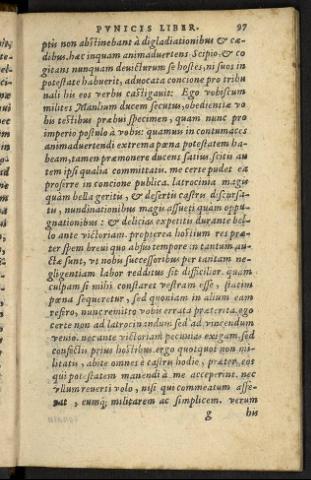 PVNICIS LIBER. 97
ptis non abstinebant à digladiationibus & cæ-
dibus. hæc inquam animaduertens Scipio, & co
gitans nunquam deuicturum se hostes, ni suos in
potestate habuerit, aduocata concione pro tribu
nali his eos verbis castigauit: Ego vobiscum
milites Manlium ducem secutus, obedientiæ vo
bis testibus præbui specimen, quam nunc pro
imperio postulo à vobis: quamuis in contumaces
animaduertendi extrema pœna potestatem ha-
beam, tamen præmonere ducens satius. scitis au
tem ipsi qualia committatis. me certe pudet ea
proferre in concione publica. latrocinia magis
quam bella geritis, & desertis castris discursa-
tis, nundinationibus magis assueti quàm oppu-
gnationibus: & delicias expetitis durante bel-
lo ante victoriam. propterea hostium res præ-
ter spem breui quo absui tempore in tantum au-
ctæ sunt, vt nobis successoribus per tantam ne-
gligentiam labor redditus sit difficilior. quam
culpam si mihi constaret vestram esse, statim
pœna sequeretur, sed quoniam in alium eam
refero, nunc remitto vobis errata præterita. ego
certe non ad latrocinandum sed ad vincendum
venio. nec ante victoriam pecunias exigam. sed
confectis prius hostibus. ergo quotquot non mi-
litatis, abite omnes è castris hodie, præter eos
qui potestatem manendi à me acceperint. nec
vllum reuerti volo, nisi qui commeatum asse-
rat, eumq; militarem ac simplicem. verum
g his